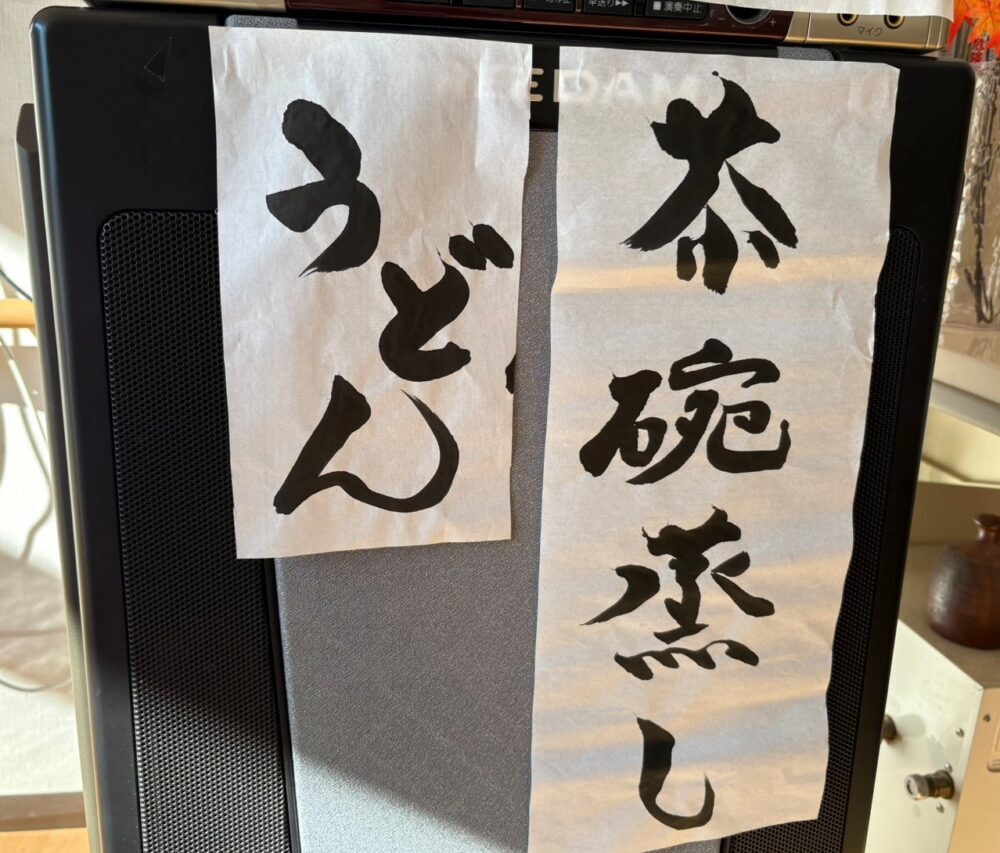 茶碗蒸し
うどん
演奏中止
早送り▶▶
マイク
DAM